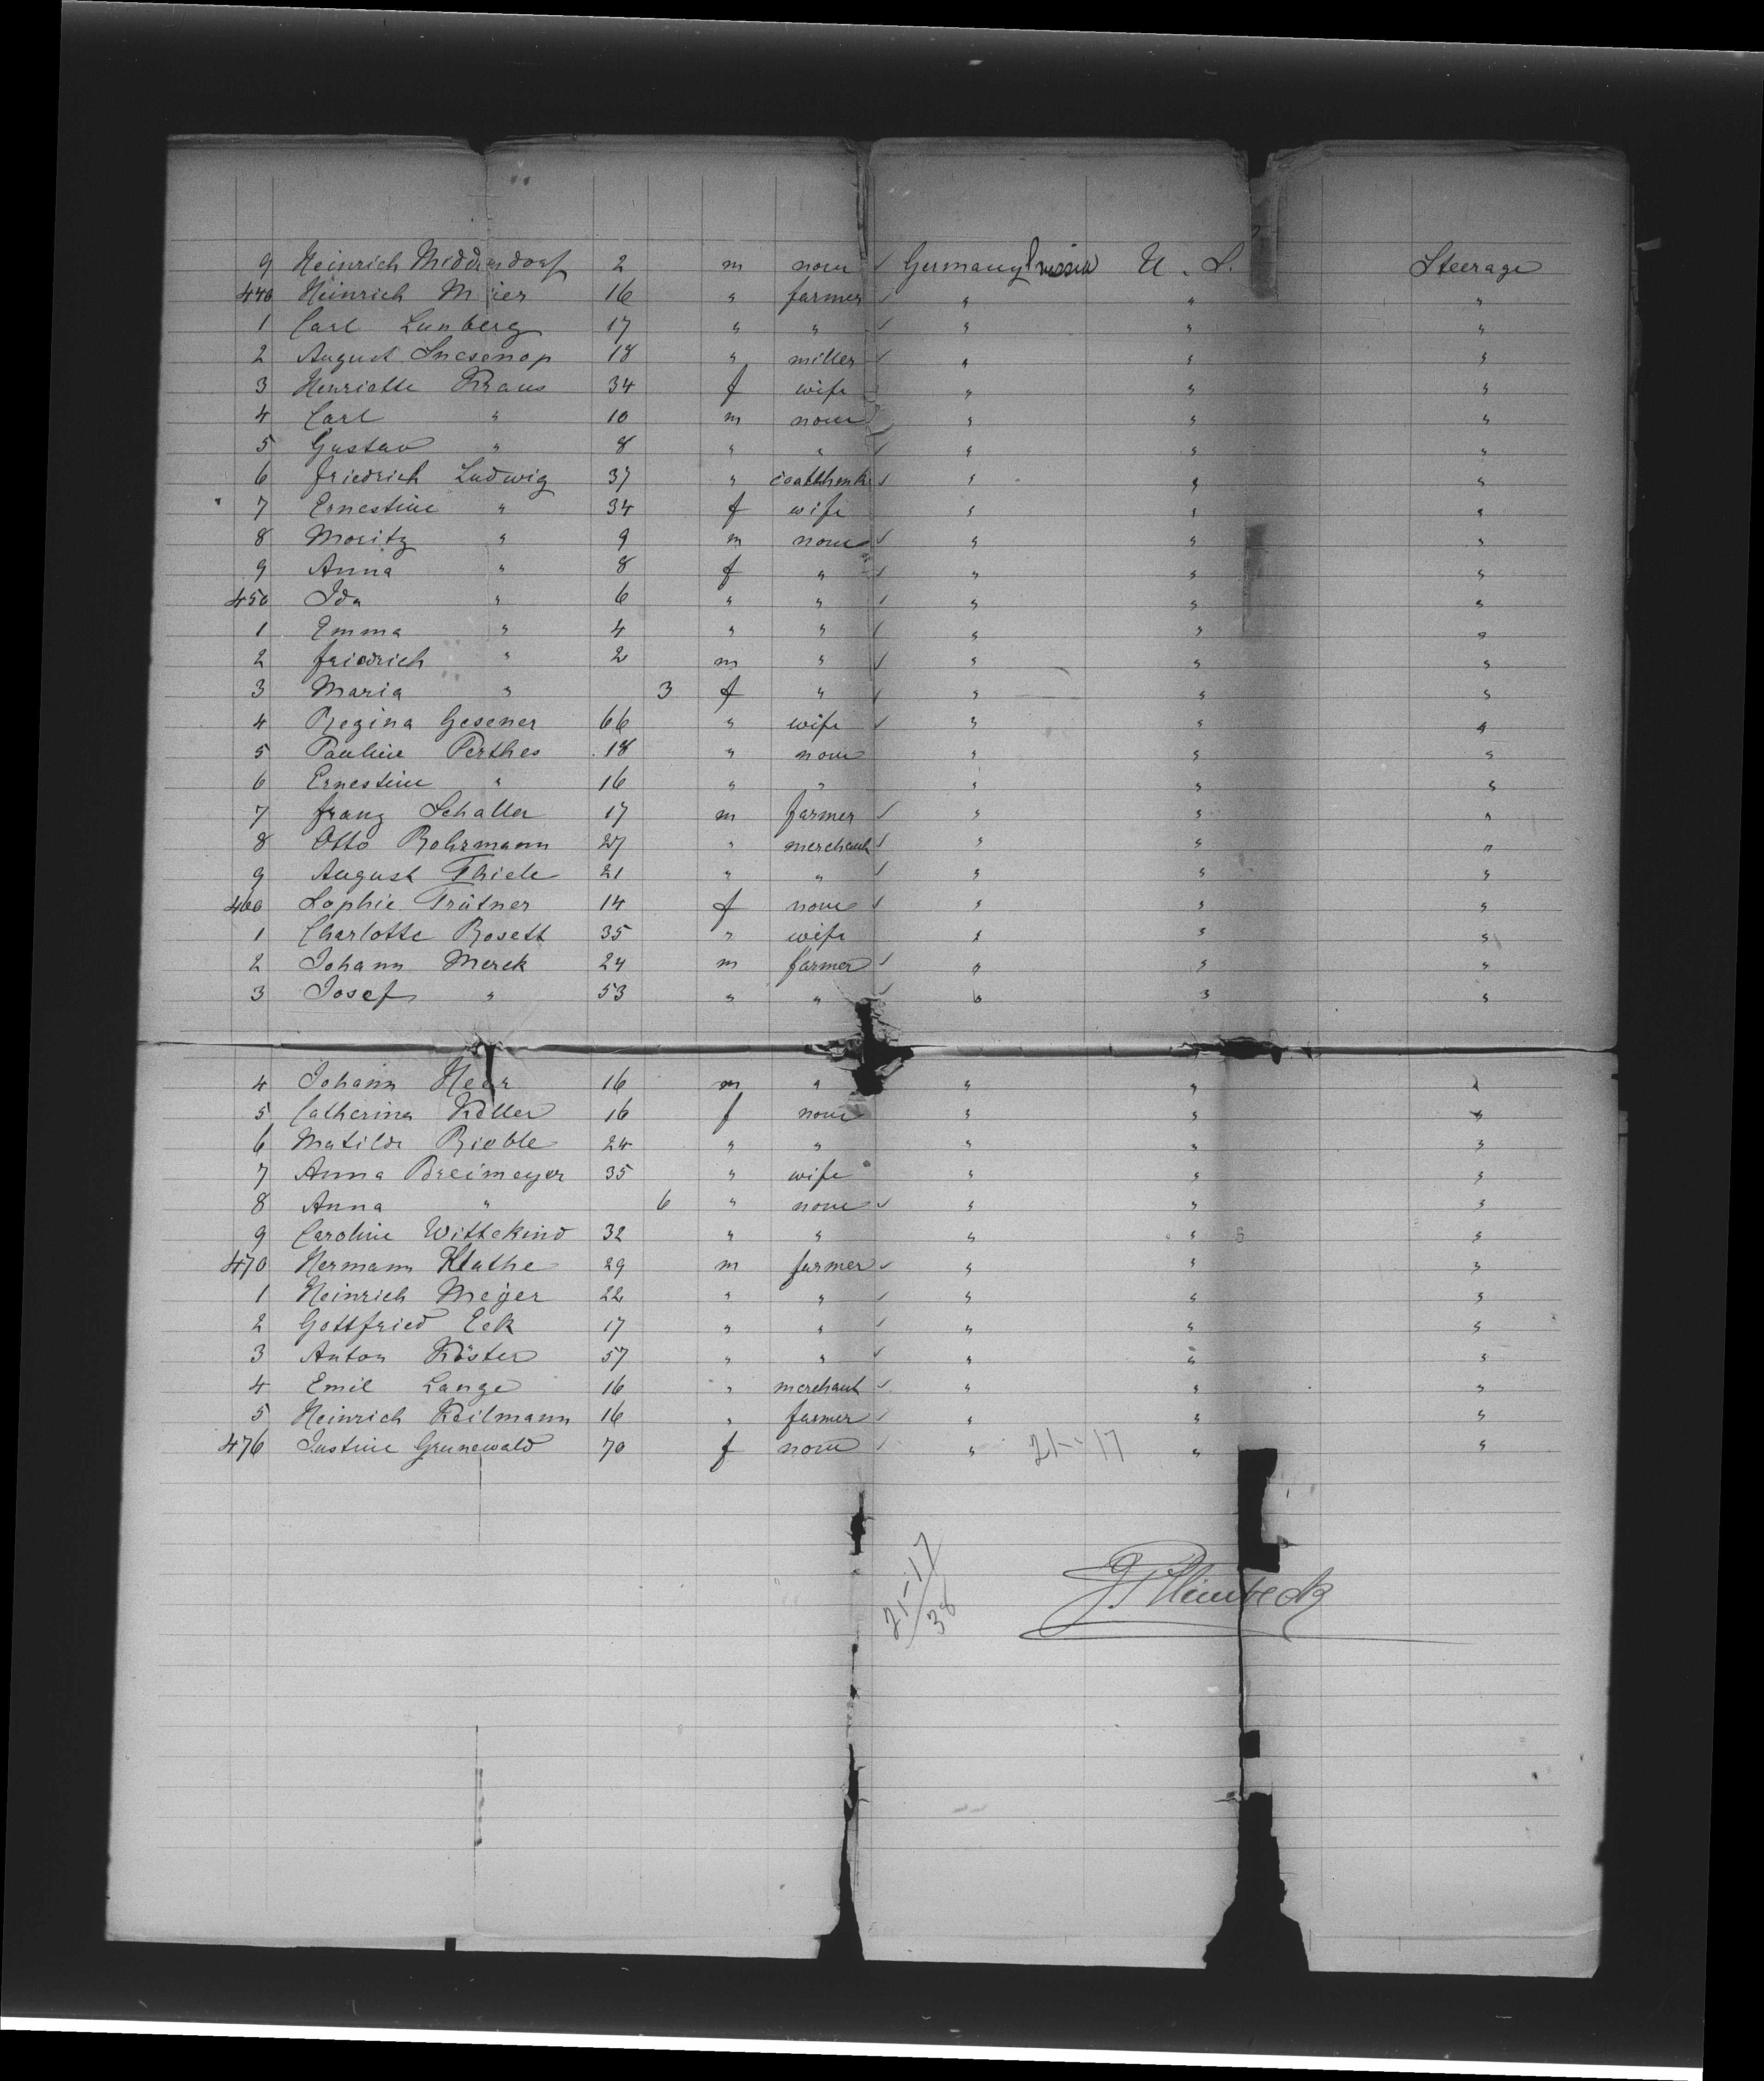 9 Heinrich Middendorf 2 m none ✓ Germany Prussia U. S. Steerage
440 Heinrich Meier 16 " farmer ✓ " " "
1 Carl Lunberg 17 " " ✓ " " "
2 August 18 " miller ✓ " " "
3 Henriette Kraus 34 f wife " " "
4 Carl " 10 m none " " "
5 Gustav " 8 " " ✓ " " "
6 Friedrich Ludwig 37 " ✓ " " "
7 Ernestine " 34 f wife " " "
8 Moritz " 9 m none ✓ " " "
9 Anna " 8 f " ✓ " " "
450 Ida " 6 " " ✓ " " "
1 Emma " 4 " " ✓ " " "
2 Friedrich " 2 m " ✓ " " "
3 Maria " 3 f " ✓ " " "
4 Regina Gesener 66 " wife ✓ " " "
5 Pauline Perthes 18 " none " " "
6 Ernestine " 16 " " " " "
7 Franz Schaller 17 m farmer ✓ " " "
8 Otto Rohrmann 27 " merchant ✓ " " "
9 August Thiele 21 " " ✓ " " "
460 Sophie Trütner 14 f none ✓ " " "
1 Charlotte Rosett 35 " wife " " "
2 Johann Merck 24 m farmer ✓ " " "
3 Josef " 53 " " ✓ " " "
4 Johann 16 m " " " "
5 Catherina Köller 16 f none " " "
6 Matilde Rieble 24 " " " " "
7 Anna Breimeyer 35 " wife " " "
8 Anna " 6 " none ✓ " " "
9 Caroline Wittekind 32 " " " " "
470 Hermann Klathe 29 m farmer ✓ " " "
1 Heinrich Meyer 22 " " ✓ " " "
2 Gottfried Eck 17 " " ✓ " " "
3 Anton Köster 57 " " ✓ " " "
4 Emil Lange 16 " merchant ✓ " " "
5 Heinrich Keilmann 16 " farmer ✓ " " "
476 Justine Grunewald 70 f none ✓ " 21-17 " "
21-17
38